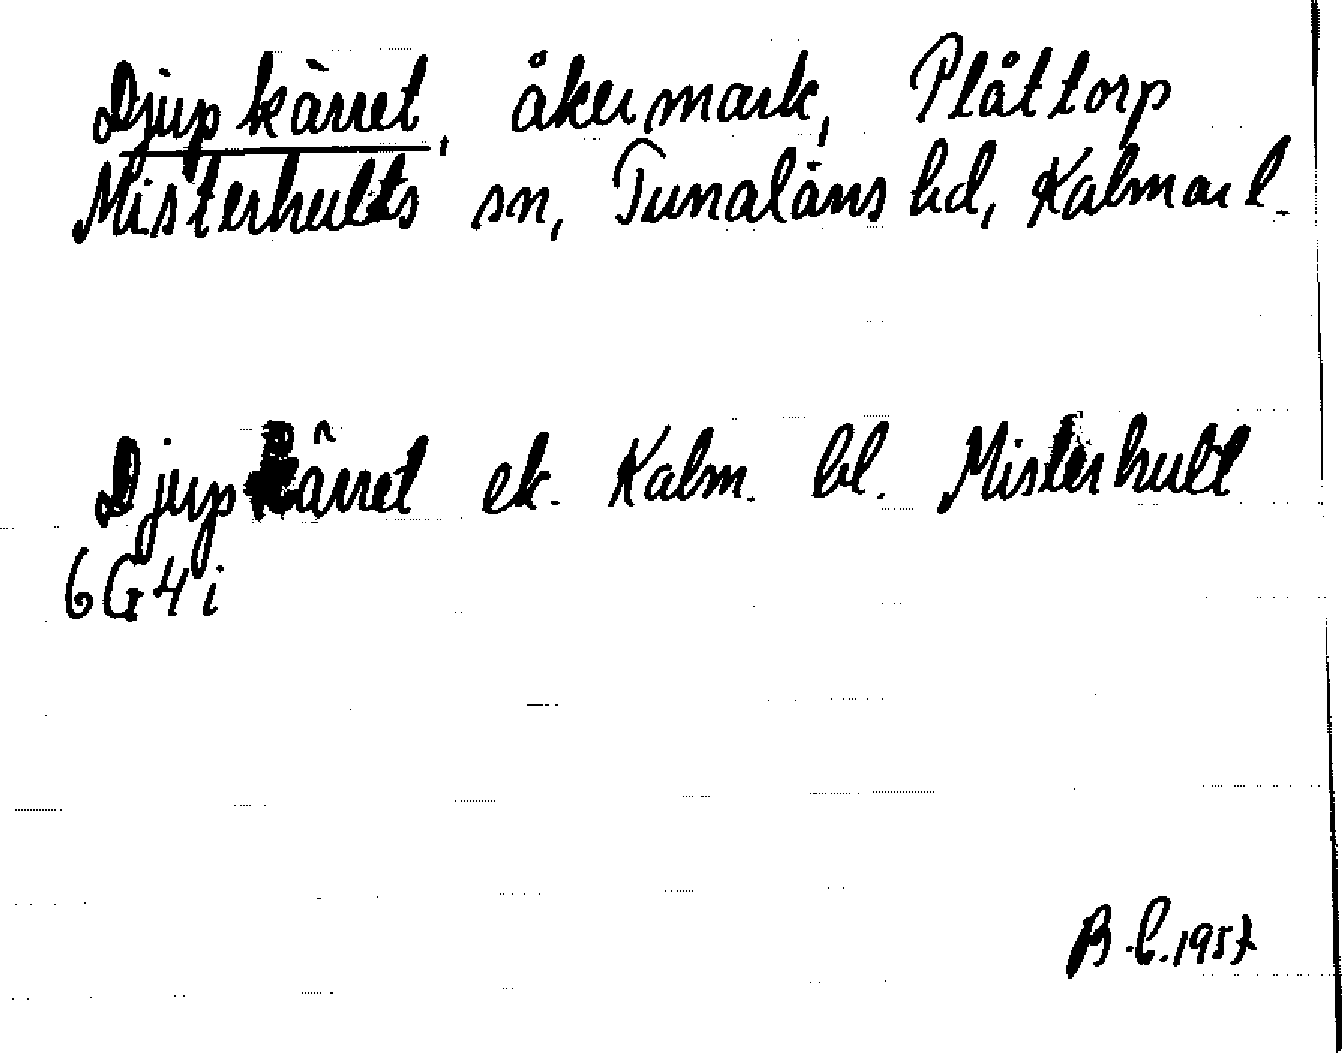 Djupkärret, åkermark, Plåttorp
Misterhults sn, Tunaläns hd, Kalmar l.
Djupkärret ek. Kalm. bl. Misterhult
6G4i
B.L. 1957